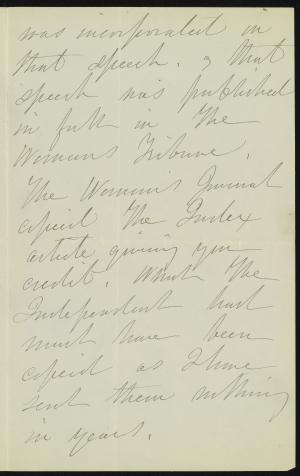 was incorporated in
that speech. & that
speech was published
in full in The
Womans Tribune.
The Woman's Journal
copied The Index
article giving you
credit. What The
Independent had
must have been
copied as I have
sent them nothing
in years.